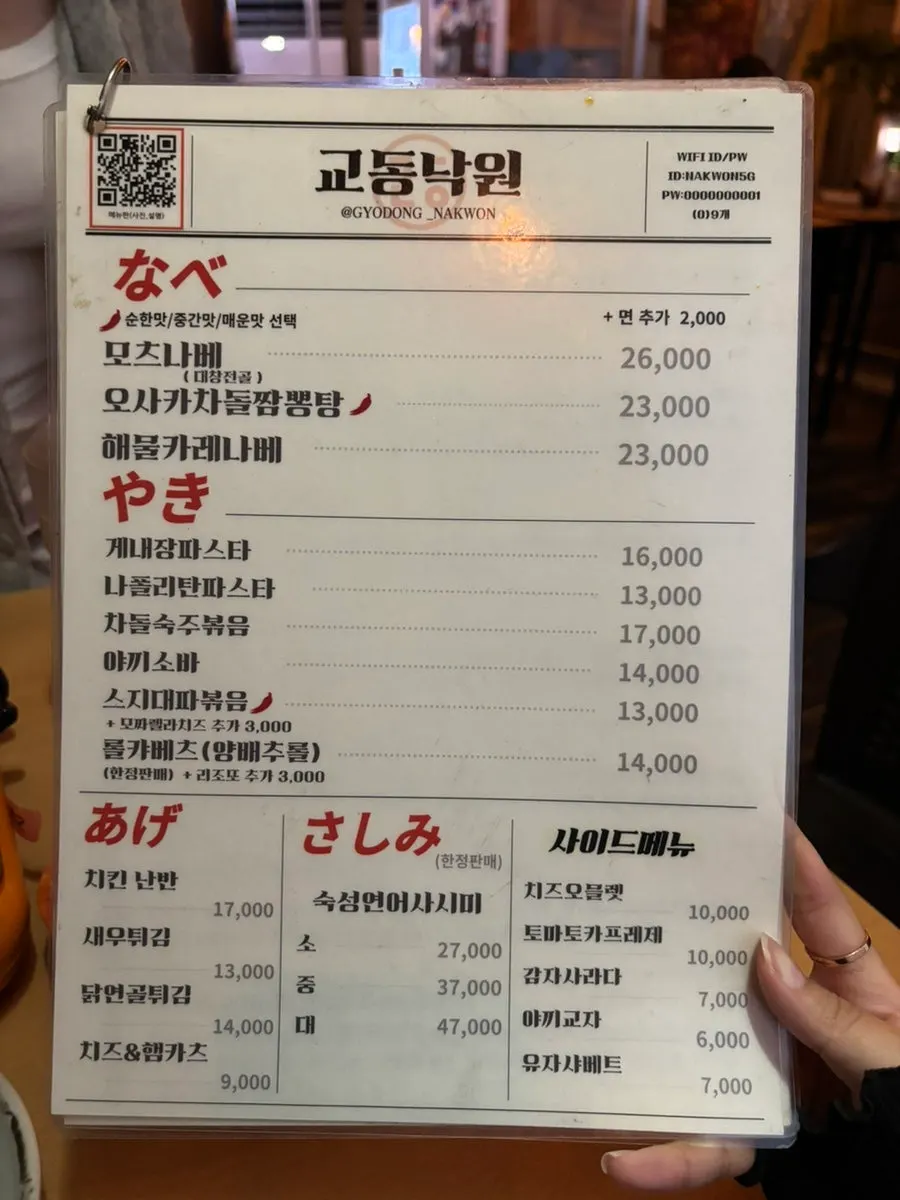 메뉴판(사진,설명)
교동낙원
@GYODONG _NAKWON
WIFI ID/PW
ID:NAKWON5G
PW:0000000001
(0)9개
なべ
순한맛/중간맛/매운맛 선택
+ 면 추가 2,000
모츠나베 26,000
( 대창전골 )
오사카차돌짬뽕탕 23,000
해물카레나베 23,000
やき
게내장파스타 16,000
나폴리탄파스타 13,000
차돌숙주볶음 17,000
야끼소바 14,000
스지대파볶음 13,000
+ 모짜렐라치즈 추가 3,000
롤캬베츠(양배추롤) 14,000
(한정판매) + 리조또 추가 3,000
あげ
치킨 난반
17,000
새우튀김
13,000
닭연골튀김
14,000
치즈&햄카츠
9,000
さしみ
(한정판매)
숙성연어사시미
소 27,000
중 37,000
대 47,000
사이드메뉴
치즈오믈렛
10,000
토마토카프레제
10,000
감자사라다
7,000
야끼교자
6,000
유자샤베트
7,000